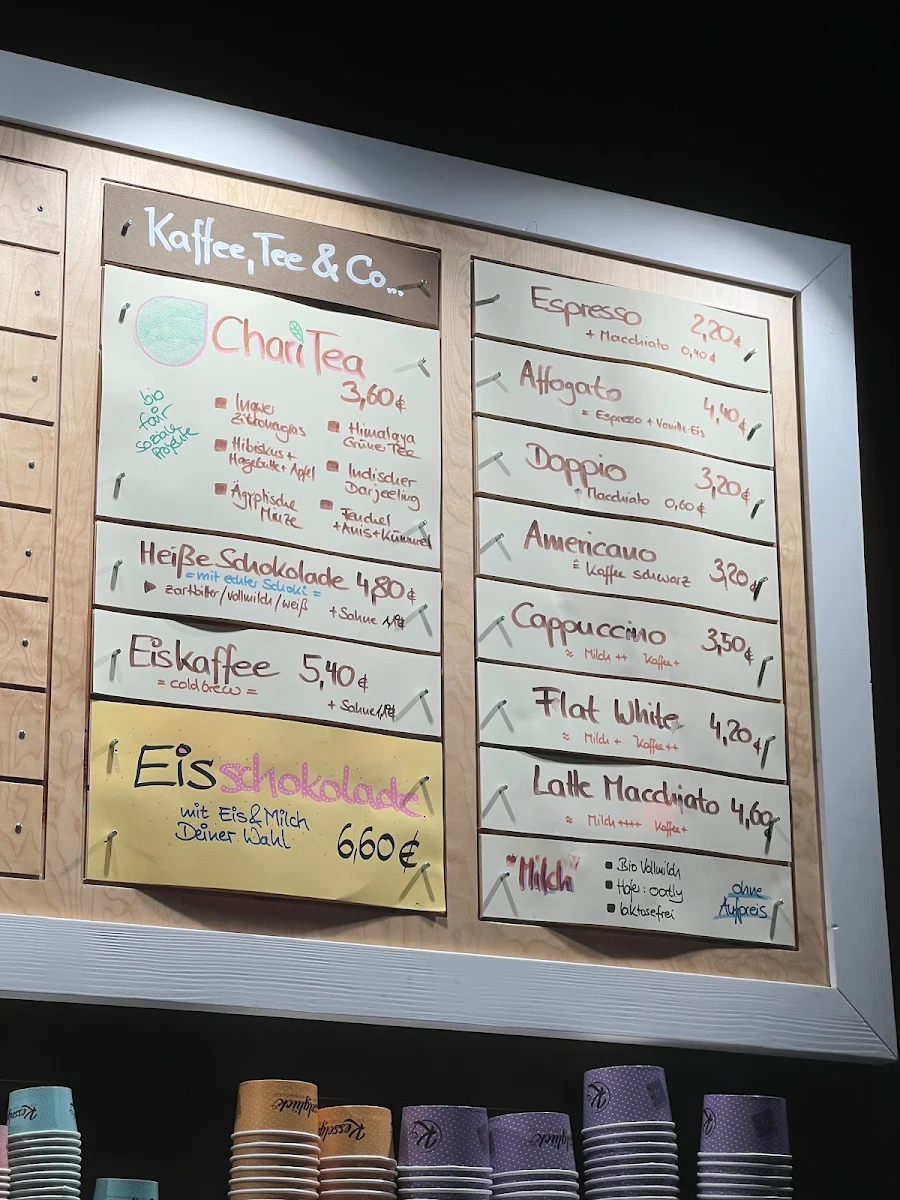 Kaffee, Tee & Co...
ChariTea
3,60€
bio
fair
soziale
Projekte
Ingwer
Zitronengras
Hibiskus +
Hagebutte + Apfel
Ägyptische
Minze
Himalaya
Grüner Tee
Indischer
Darjeeling
Fenchel
+Anis+Kümmel
Heiße Schokolade 4,80€
=mit echter Schoki=
▶ zartbitter/vollmilch/weiß
+Sahne
Eiskaffee 5,40€
= coldbrew =
+ Sahne
Eisschokolade
mit Eis & Milch
Deiner Wahl
6,60€
Espresso 2,20€
+ Macchiato 0,40€
Affogato 4,40€
= Espresso + Vanille-Eis
Doppio 3,20€
Macchiato 0,60€
Americano 3,20€
≙ Kaffee schwarz
Cappuccino 3,50€
≈ Milch ++ Kaffee+
Flat White 4,20€
≈ Milch + Kaffee++
Latte Macchiato 4,60€
≈ Milch++++ Kaffee+
"Milch"
Bio Vollmilch
Hafer: oatly
laktosefrei
ohne
Aufpreis